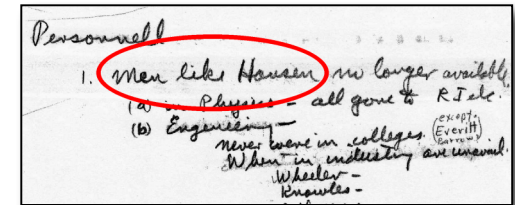 Personnell
1. Men like Hansen no longer available
(a) in Physics - all gone to R Tele.
(b) Engineering -
never were in colleges. (except. Everitt Barrow)
When in industry are unavail.
Wheeler -
Knowles -